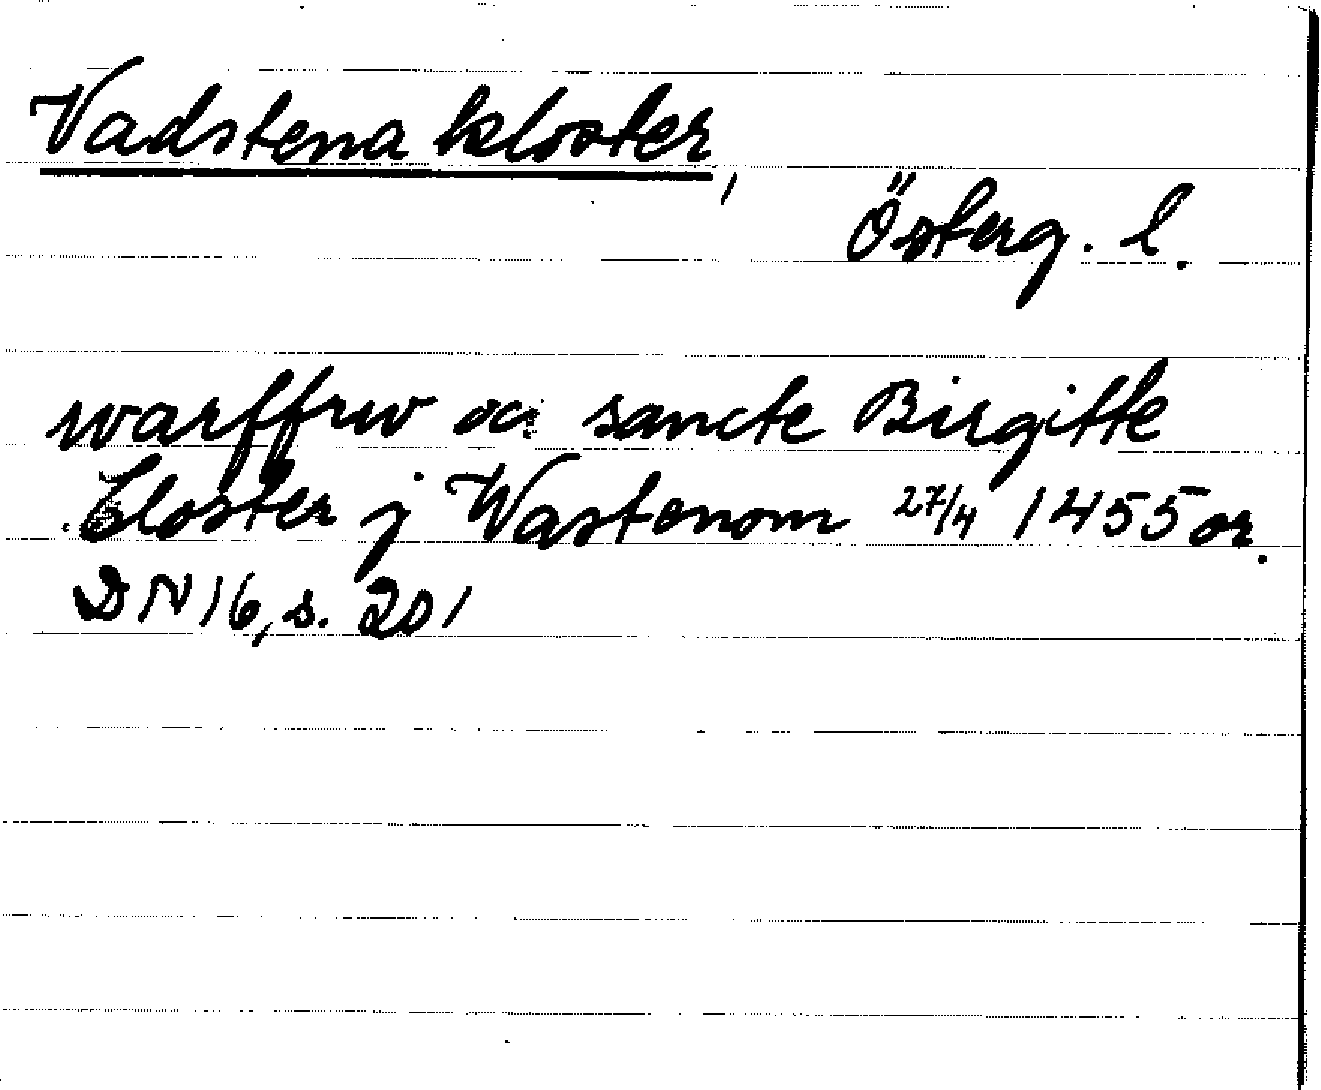 Vadstena kloster,
Österg. l.
warffrw oc sancte Birgitte
closter j Wastenom 27/4 1455 or.
DN 16, s. 201